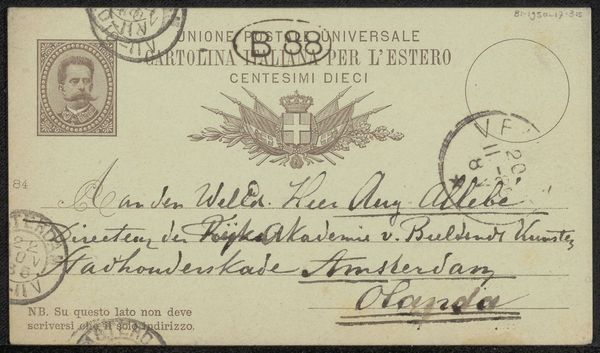 BI-1950-17-315
UNIONE POSTALE UNIVERSALE
B 88
CARTOLINA ITALIANA PER L'ESTERO
CENTESIMI DIECI
84
Aan den WelEd. Heer Aug Allebé
Directeur der Rijks Akademie v. Beeldende Kunsten
Stadhouderskade Amsterdam
Olanda
NB. Su questo lato non deve
scriversi che il solo indirizzo.